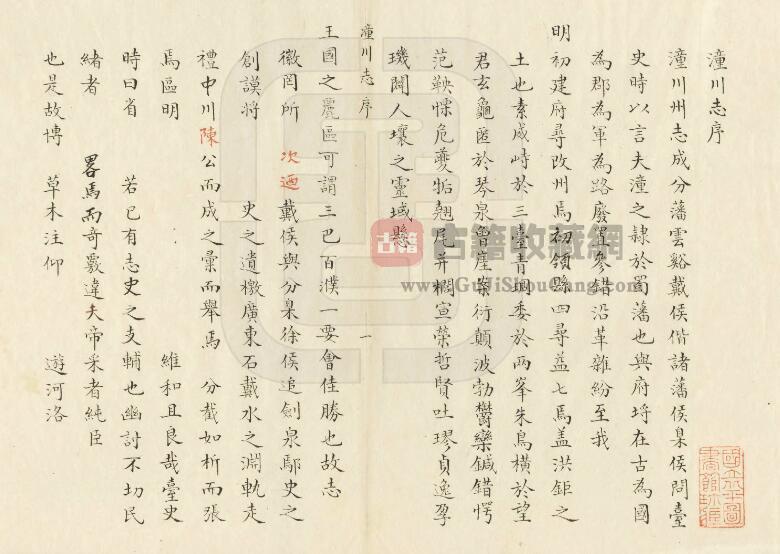 潼川志序
潼川州志成分藩雲谿戴侯偕諸藩侯臬侯問臺
史時以言夫潼之隸於蜀藩也與府埒在古為國
為郡為軍為路廢置參錯沿革雜紛至我
明初建府尋改州焉初領縣四尋益七焉蓋洪鉅之
土也素威峙於三臺青堈委於兩峯朱鳥橫於望
君玄龜匿於琴泉魯塵柴衍顛波勃鬱欒鍼錯愕
范鞅慄危夔垢翹尾并櫚宣榮哲賢吐璆貞逸孕
璣闢人壤之靈域懸
潼川志序
一
王國之麗區可謂三巴百濮一要會佳勝也故志
徽罔所 次迺戴侯與分臬徐侯追劍泉鄢史之
創謨將 史之遺檄廣東石戴水之淵軌走
禮中川陳公而成之彙而舉焉 分截如析而張
焉區明 維和且良哉臺史
時曰省 若已有志史之支輔也幽討不切民
緒者 畧焉而奇覈違夫帝采者純臣
也是故博 草木注仰 遊河洛
古籍
古籍收藏網
www.GuJiShouCang.com